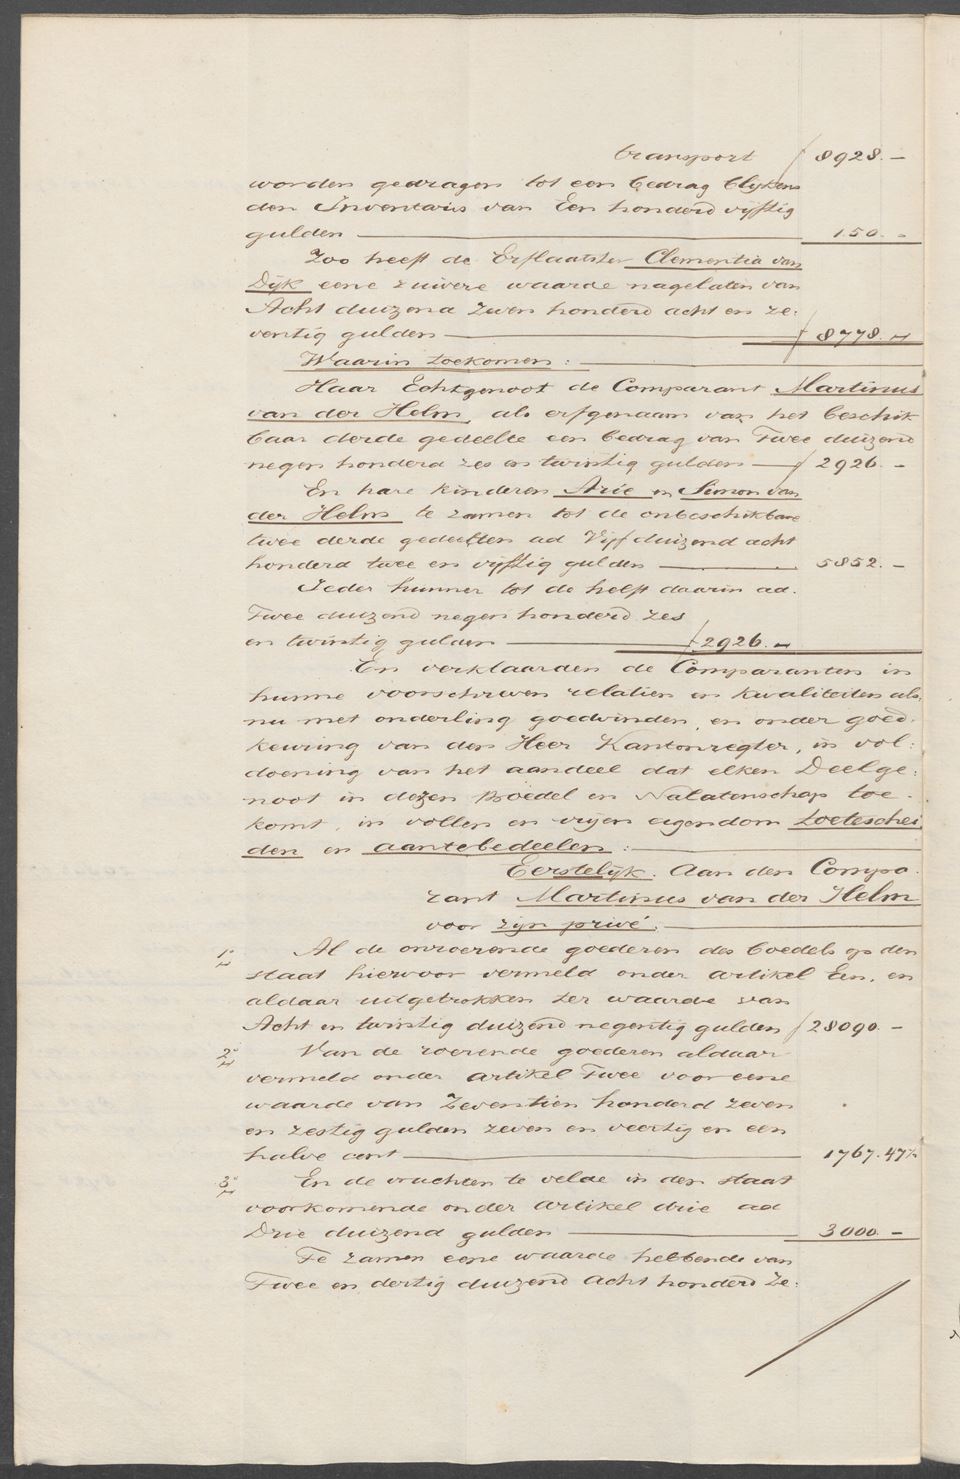 transport ƒ 8928.-
worden gedragen tot een bedrag blijkens
den Inventaris van Een honderd vijftig
gulden 150.-
Zoo heeft de Erflaatster Clementia van
Dijk eene zuivere waarde nagelaten van
Acht duizend zeven honderd acht en ze:
ventig gulden ƒ 8778.-
Waarin toekomen:
Haar Echtgenoot de Comparant Martinus
van der Helm, als erfgenaam van het beschik
baar derde gedeelte een bedrag van Twee duizend
negen honderd zes en twintig gulden ƒ 2926.-
En hare kinderen Arie en Simon van
der Helm te zamen tot de onbeschikbare
twee derde gedeelten ad Vijf duizend acht
honderd twee en vijftig gulden 5852.-
Ieder hunner tot de helft daarin ad.
Twee duizend negen honderd zes
en twintig gulden ƒ 2926.-
En verklaarden de Comparanten in
hunne voorschreven relatien en kwaliteiten als
nu met onderling goedvinden, en onder goed.
keuring van den Heer Kantonregter, in vol:
doening van het aandeel dat elken Deelge:
noot in dezen Boedel en Nalatenschap toe.
komt, in vollen en vrijen eigendom toeteschei
den en aantebedeelen:
Eerstelijk. Aan den Compa.
rant Martinus van der Helm
voor zijn privé.
1º Al de onroerende goederen des boedels op den
staat hiervoor vermeld onder artikel Een, en
aldaar uitgetrokken ter waarde van
Acht en twintig duizend negentig gulden ƒ 28090.-
2º Van de roerende goederen aldaar
vermeld onder artikel Twee voor eene
waarde van Zeventien honderd zeven
en zestig gulden zeven en veertig en een
halve cent 1767.47½
3º En de vruchten te velde in den staat
voorkomende onder artikel drie ad
Drie duizend gulden 3000.-
Te zamen eene waarde hebbende van
Twee en dertig duizend Acht honderd ze: